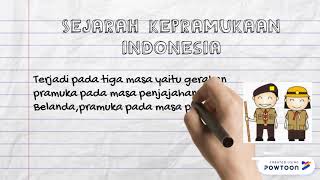 SEJARAH KEPRAMUKAAN
INDONESIA
Terjadi pada tiga masa yaitu gerakan
pramuka pada masa penjajahan
Belanda,pramuka pada masa
CREATED USING
POWTOON